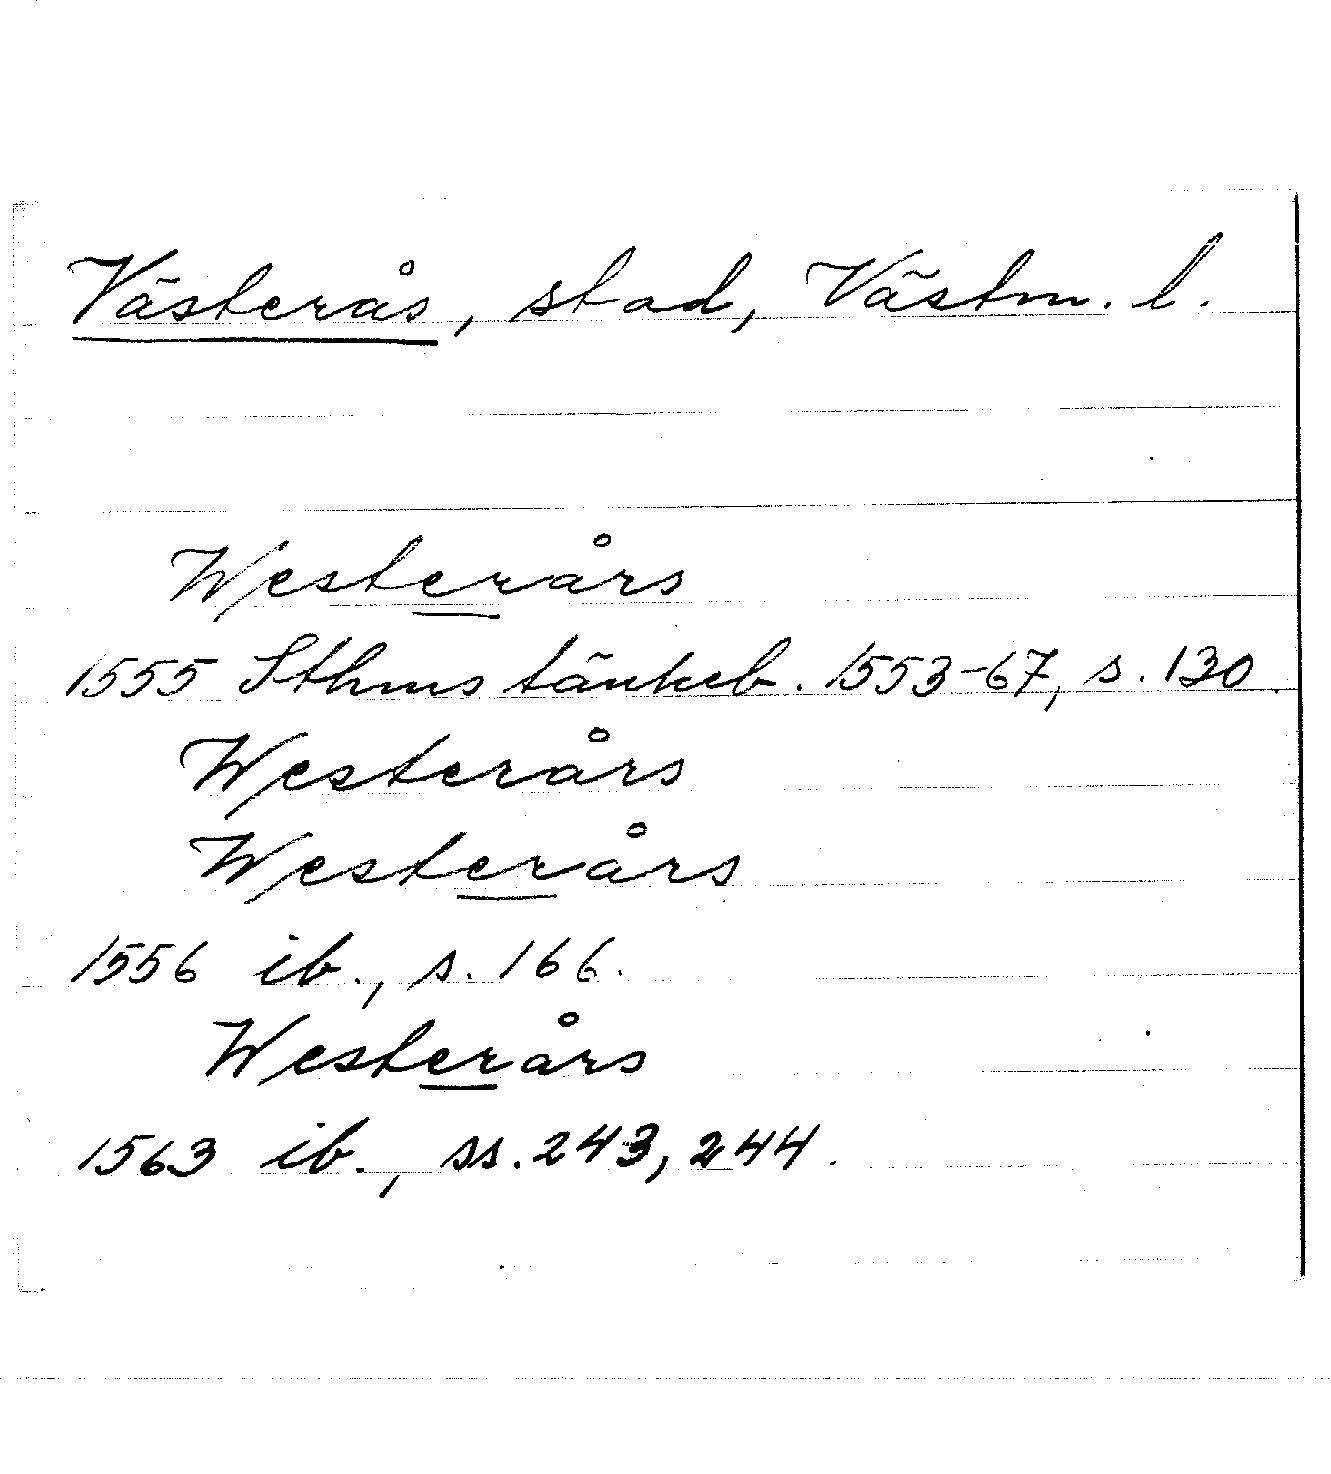 Västerås, stad, Västm. l.
Westerårs
1555 Sthms tänkeb. 1553-67, s. 130.
Westerårs
Westerårs
1556 ib., s. 166.
Westerårs
1563 ib., ss. 243, 244.